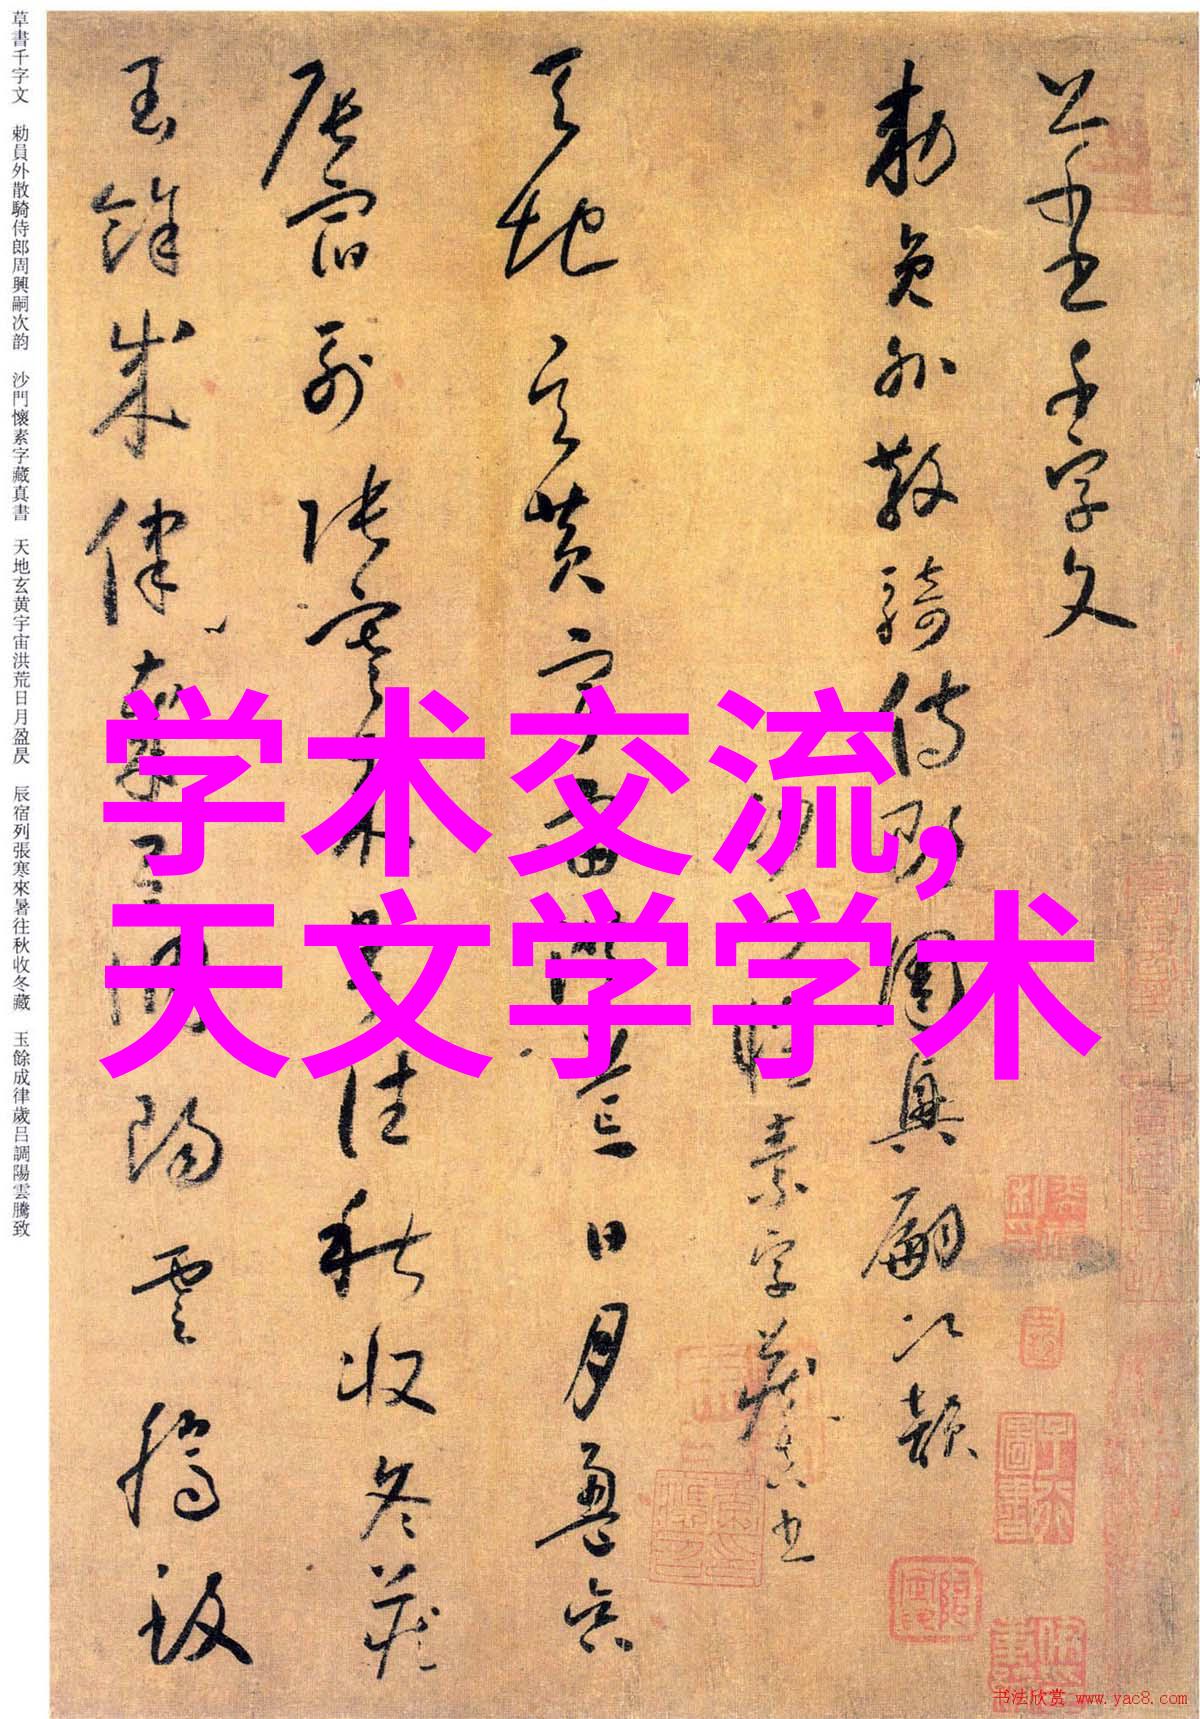 草書千字文
勅員外散騎侍郎周興嗣次韵
沙門懷素字藏真書
天地玄黄宇宙洪荒日月盈昃
辰宿列張寒來暑往秋收冬藏
玉餘成律歲吕調陽雲騰致
草書千字文
勅員外散騎侍郎周興嗣次韻
沙門懷素字藏真書
天地玄黄宇宙洪荒日月盈昃
辰宿列張寒來暑往秋收冬藏
玉餘成律歲吕調陽雲騰致
学术交流,
天文学学术
书法欣赏 www.yac8.com